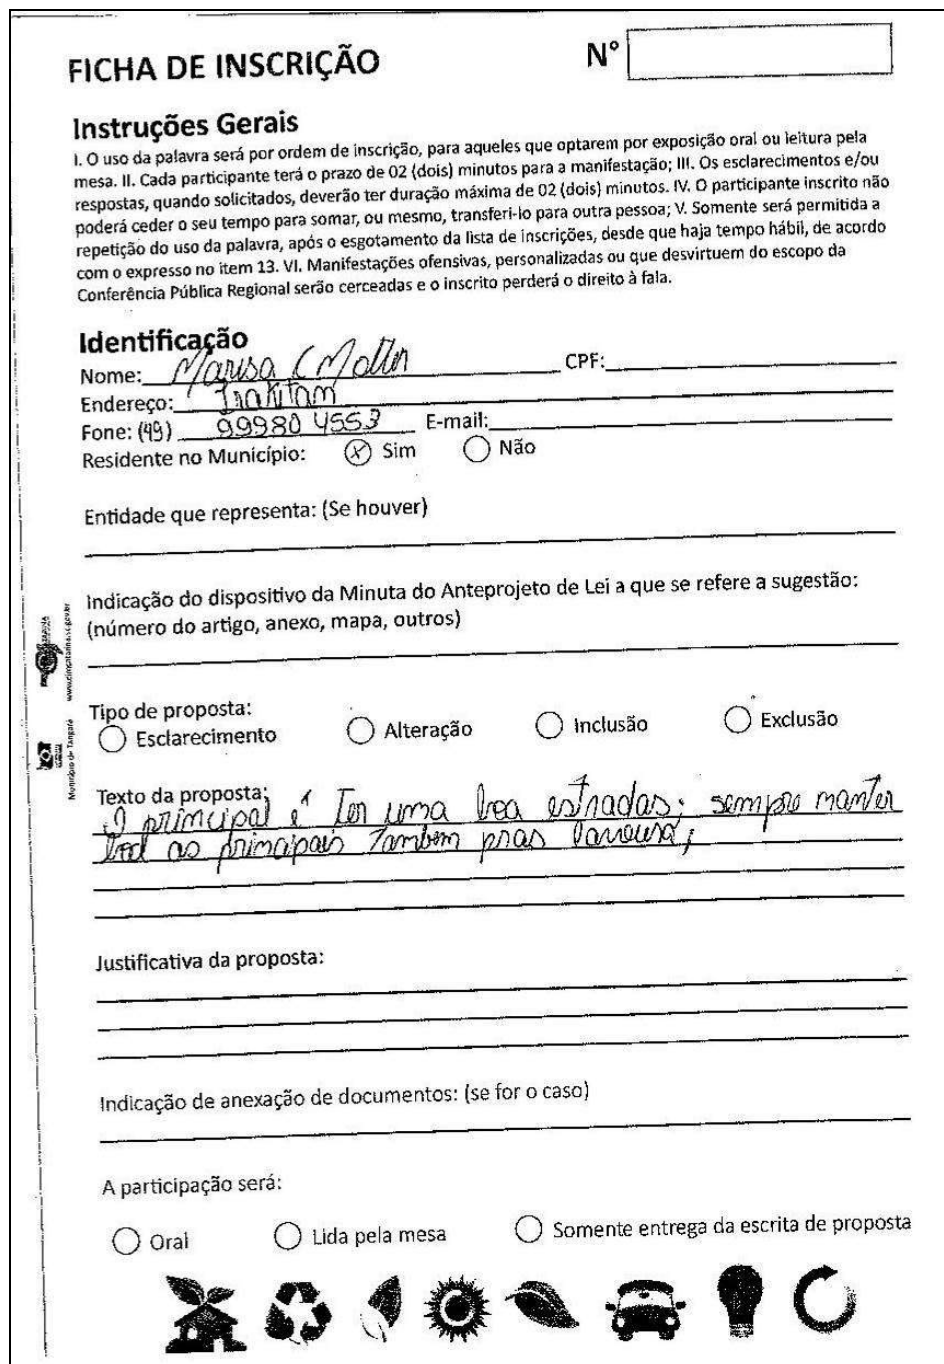 FICHA DE INSCRIÇÃO
N°
Instruções Gerais
I. O uso da palavra será por ordem de inscrição, para aqueles que optarem por exposição oral ou leitura pela
mesa. II. Cada participante terá o prazo de 02 (dois) minutos para a manifestação; III. Os esclarecimentos e/ou
respostas, quando solicitados, deverão ter duração máxima de 02 (dois) minutos. IV. O participante inscrito não
poderá ceder o seu tempo para somar, ou mesmo, transferi-lo para outra pessoa; V. Somente será permitida a
repetição do uso da palavra, após o esgotamento da lista de inscrições, desde que haja tempo hábil, de acordo
com o expresso no item 13. VI. Manifestações ofensivas, personalizadas ou que desvirtuem do escopo da
Conferência Pública Regional serão cerceadas e o inscrito perderá o direito à fala.
Identificação
Nome: Marisa C CPF:
Endereço: Irakitam
Fone: (49) 99980 4553 E-mail:
Residente no Município: (X) Sim Não
Entidade que representa: (Se houver)
Indicação do dispositivo da Minuta do Anteprojeto de Lei a que se refere a sugestão:
(número do artigo, anexo, mapa, outros)
www.cimcatarina.sc.gov.br
Município de Tangará
Tipo de proposta:
Esclarecimento Alteração Inclusão Exclusão
Texto da proposta:
O principal é Ter uma boa estradas; sempre manter
as principais Também pras
Justificativa da proposta:
Indicação de anexação de documentos: (se for o caso)
A participação será:
Oral Lida pela mesa Somente entrega da escrita de proposta